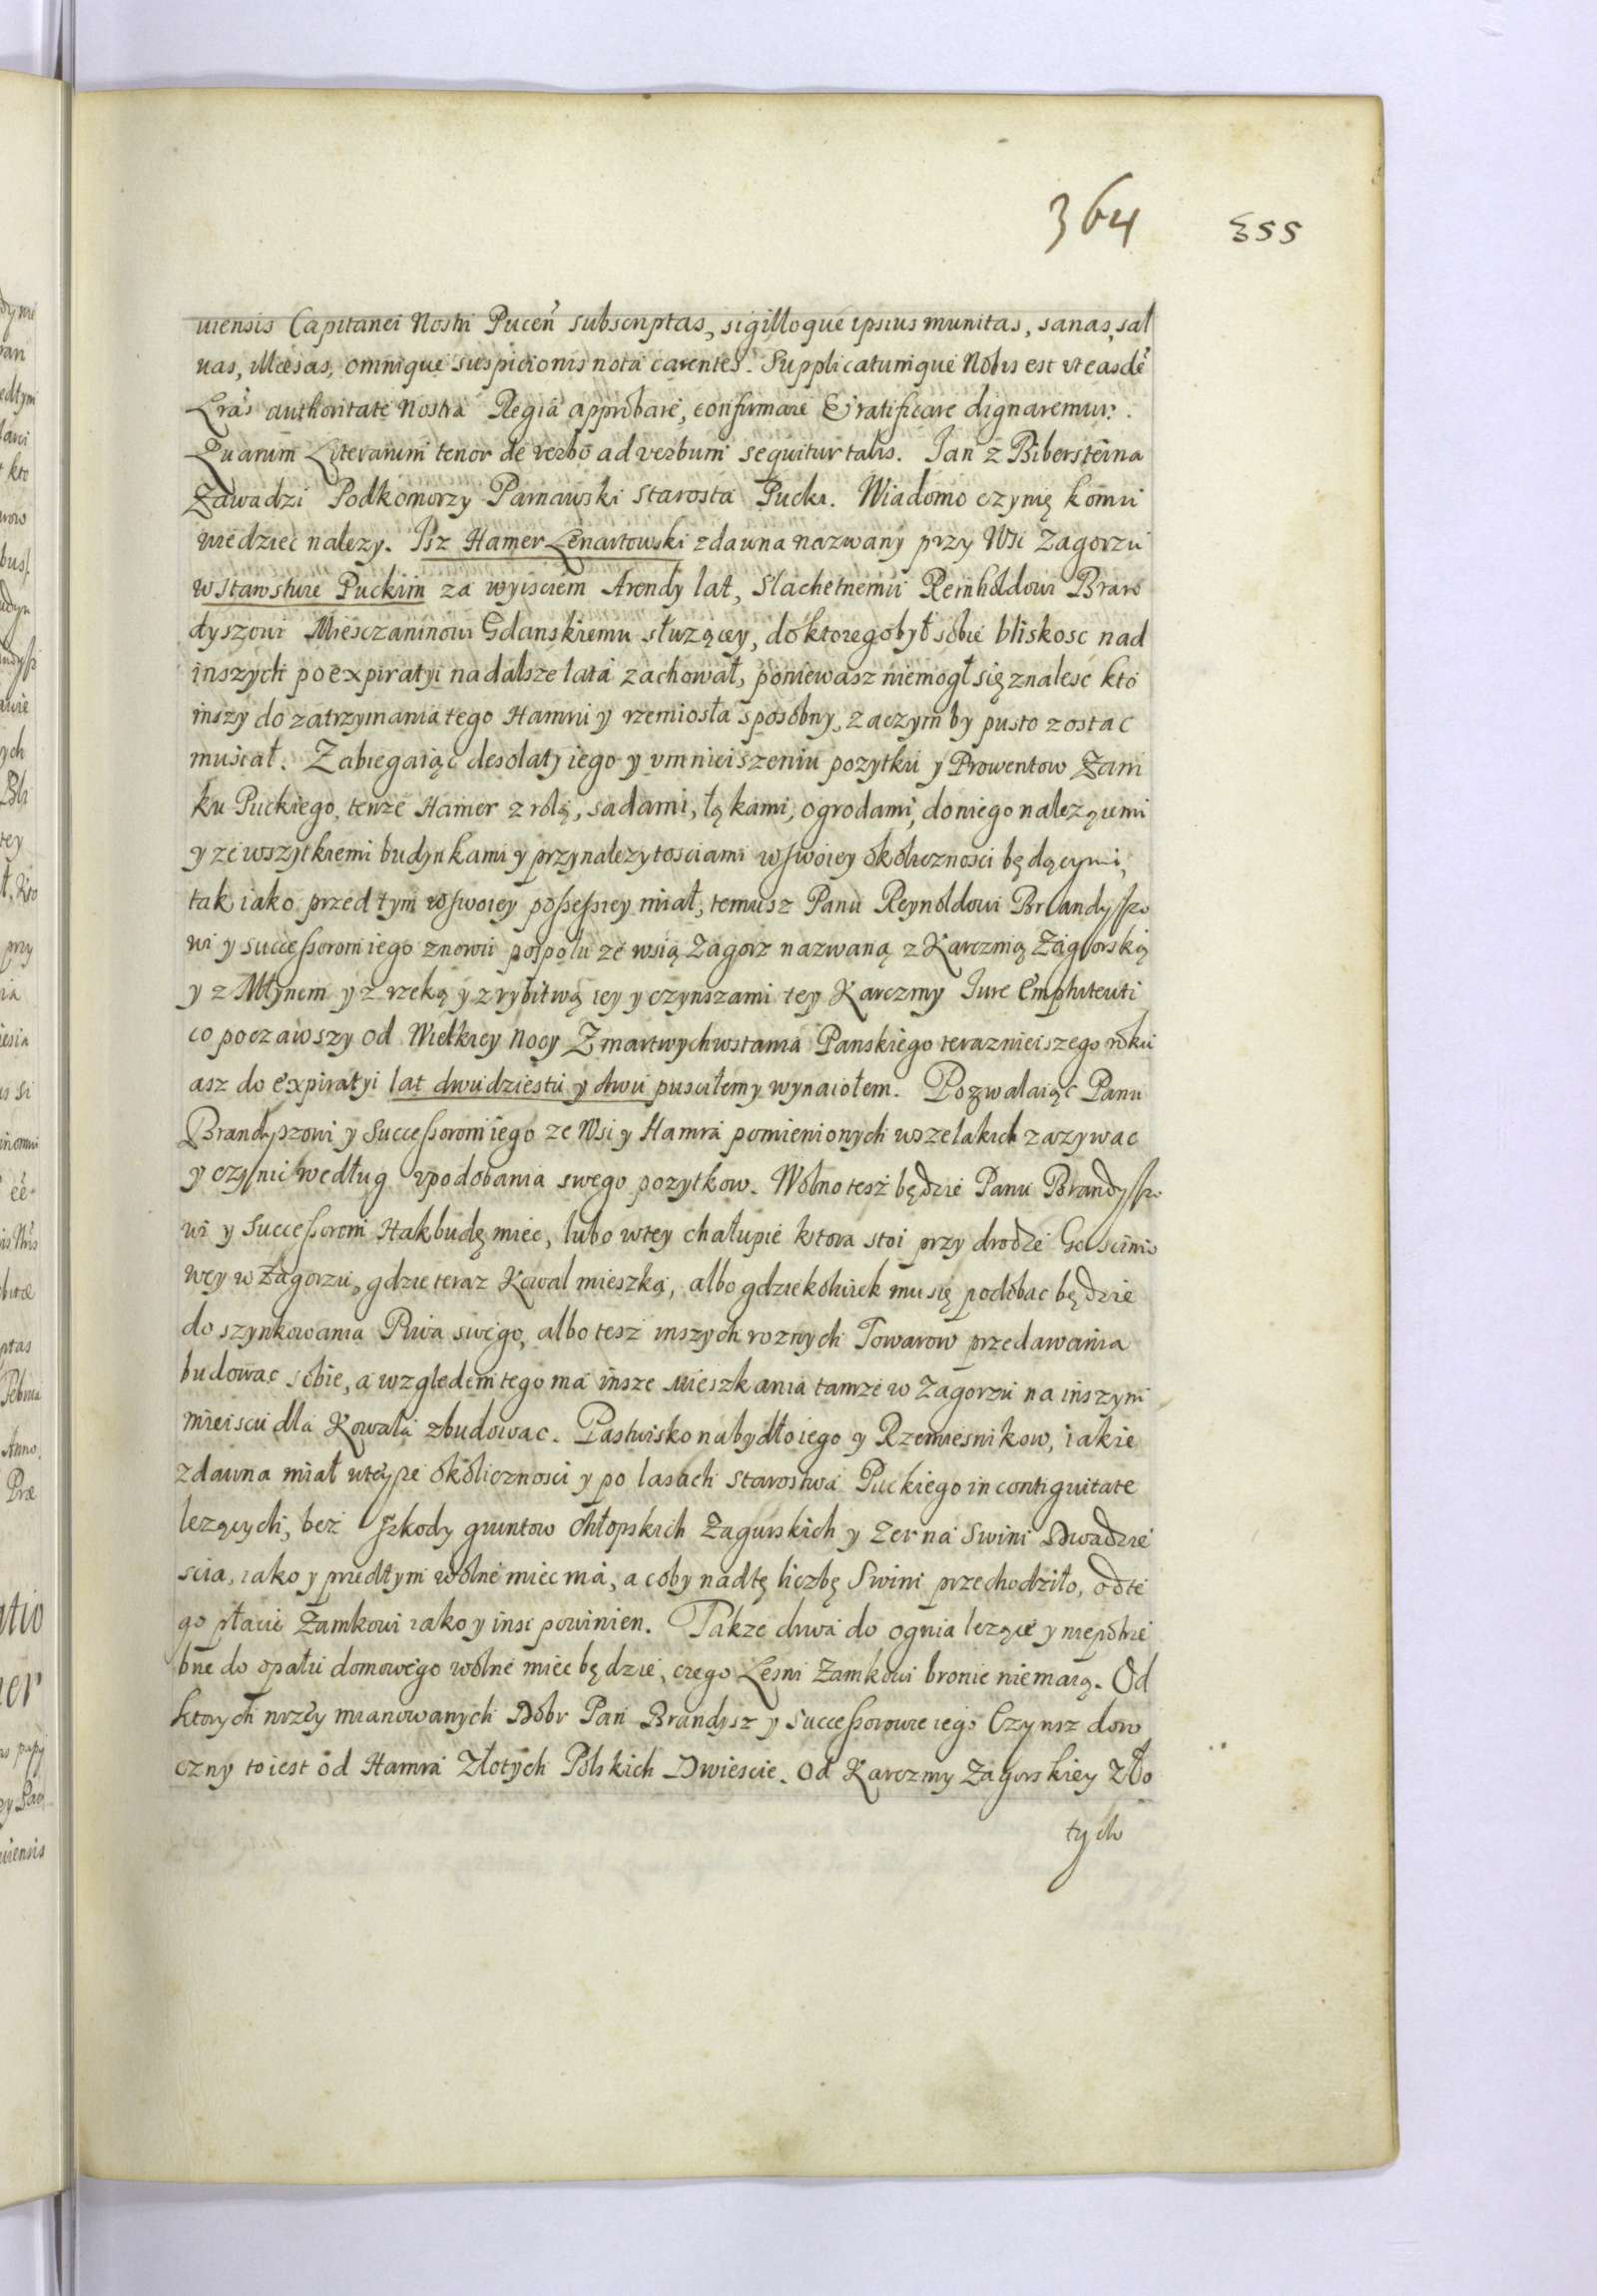 364 355
uiensis Capitanei Nostri Puceñ subscriptas, sigilloque ipsius munitas, sanas, sal
uas, illæsas, omnique suspicionis nota carentes. Supplicatumque Nobis est vt easdẽ
Lrãs authoritate Nostra Regiâ approbare, confirmare & ratificare dignaremur.
Quarum Literarum tenor de verbo ad verbum sequitur talis. Jan z Bibersteina
Zawadzi Podkomorzy Parnawski Starosta Pucki. Wiadomo czynię komu
wiedziec nalezy. Isz Hamer Lenartowski zdawna nazwany przy Wsi Zagorzu
w Starostwie Puckim za wyisciem Arendy lat, Slachetnemu Reinholdowi Bran
dyszowi Miesczaninowi Gdanskiemu słuzącey, do ktorego był sobie bliskosc nad
inszych po expiratyi na dalsze lata zachował, poniewasz niemogł się znalesc kto
inszy do zatrzymania tego Hamru y rzemiosła sposobny, zaczym by pusto zostac
musiał. Zabiegaiąc desolatyiego y vmnieiszeniu pozytku y Prowentow Zam
ku Puckiego, tenze Hamer z rolą, sadami, łąkami, ogrodami, do niego nalezącemi
y ze wszytkiemi budynkami y przynalezytosciami w swoiey okolicznosci będącymi,
tak iako przed tym w swoiey possessiey miał, temusz Panu Reynoldowi Brandyszo
wi y successorom iego znowu pospołu ze wsią Zagorz nazwaną z Karczmą Zagorską
y z Młynem y z rzeką y z rybitwą iey y czynszami tey Karczmy Jure Emphiteuti
co począwszy od Wielkiey Nocy Zmartwychwstania Panskiego teraznieiszego roku
asz do expiratyi lat dwudziestu y dwu pusciłem y wynaiołem. Pozwalaiąc Panu
Brandyszowi y Successorom iego ze Wsi y Hamra pomienionych wszelakich zazywac
y czynic według vpodobania swego pozytkow. Wolno tesz będzie Panu Brandyszo
wi y Successorom Hakbudę miec, lubo w tey chałupie ktora stoi przy drodze Goscinno
wey w Zagorzu, gdzie teraz Kowal mieszka, albo gdziekolwiek mu się podobac będzie
do szynkowania Piwa swego, albo tesz inszych roznych Towarow przedawania
budowac sobie, a względem tego ma insze Mieszkania tamze w Zagorzu na inszym
mieiscu dla Kowala zbudowac. Pastwisko na bydło iego y Rzemiesnikow, iakie
zdawna miał w teyze okolicznosci y po lasach Starostwa Puckiego in contiguitate
lezących, bez szkody gruntow chłopskich Zagurskich y Zer na Swini Dwadzie
scia, iako y przedtym wolne miec ma, a coby nad tę liczbę Swini przechodziło, od te
go płacic Zamkowi iako y insi powinien. Takze drwa do ognia lezące y niepotrze
bne do opału domowego wolne miec będzie, czego Lesni Zamkowi bronic niemaią. Od
ktorych wyzey mianowanych Dobr Pan Brandysz y Successorowie iego Czynsz doro
czny to iest od Hamra Złotych Polskich Dwiescie. Od Karczmy Zagorskiey Zło
tych